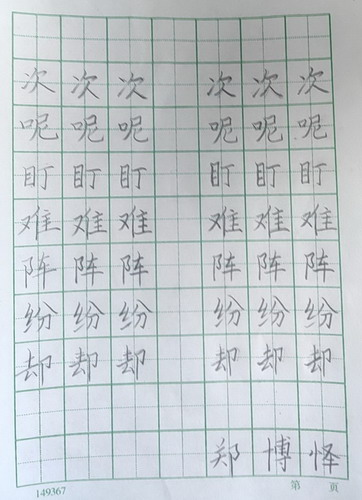 次次次 次次次
呢呢呢 呢呢呢
盯盯盯 盯盯盯
难难难 难难难
阵阵阵 阵阵阵
纷纷纷 纷纷纷
却却却 却却却
郑博怿
149367 第 页